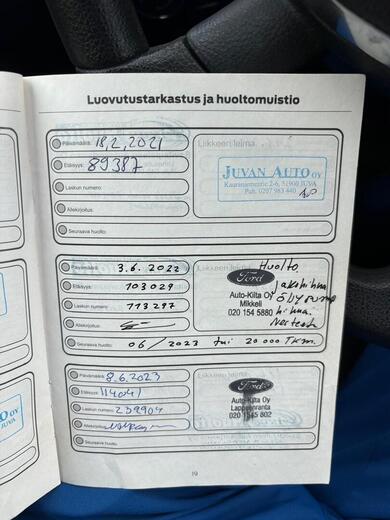 Luovutustarkastus ja huoltomuistio
Päivämäärä: 18.2.2021
Etäisyys: 89387
Laskun numero:
Allekirjoitus:
Seuraava huolto:
Liikkeen leima:
JUVAN AUTO OY
Kauriamientie 2-6, 51900 JUVA
Puh. 0207 983 440
Päivämäärä: 3.6.2022
Etäisyys: 103029
Laskun numero: 113297
Allekirjoitus:
Seuraava huolto: 06/2023 tai 20 000 Tkm.
Huolto
Jakohihna
Öljypump
hihna.
Nesteet
Ford
Auto-Kilta Oy
Mikkeli
020 154 5880
Päivämäärä: 8.6.2023
Etäisyys: 114041
Laskun numero: 239904
Allekirjoitus:
Seuraava huolto:
Liikkeen leima:
Ford
Auto-Kilta Oy
Lappeenranta
020 1545 802
19
OY
JUVA